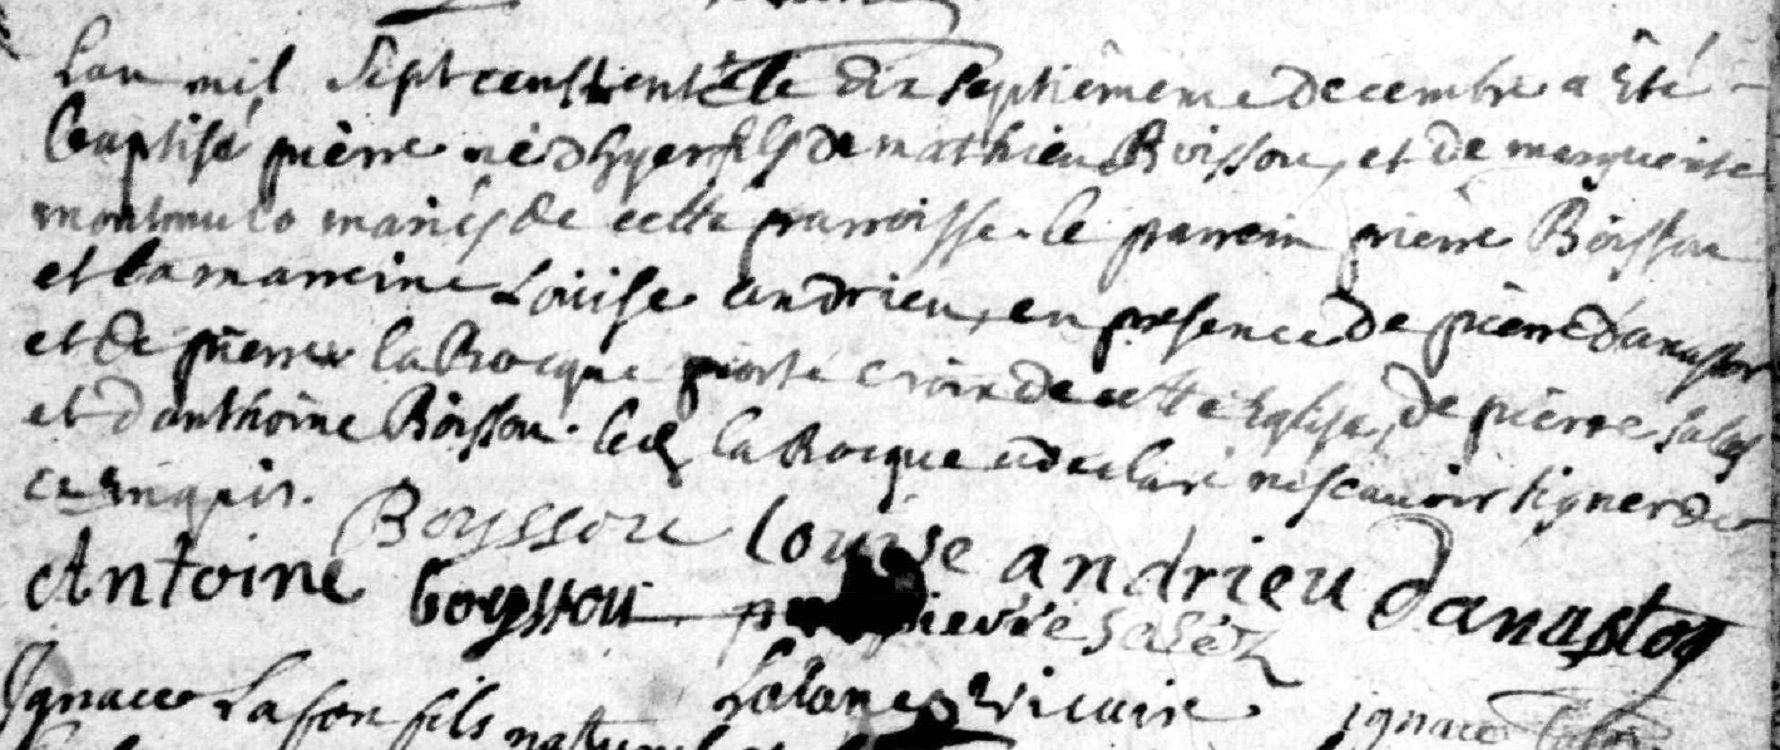 Lan mil Sept cens trente le dix septième decembre a Êté
baptisé pièrre né dhyer fils de mathieu Boissou, et de marguerite
mariés de cette parroisse. le parrein pièrre Boissou
et la marreine Loüise andrieu, en presence de pièrre danastor
et de pièrre la Rocque porte croix de cette Eglise, de pièrre Sales
et danthoine Boissou. led la Rocque a declaré ne scauoir signer de
ce requis.
Boyssou Louise andrieu danastor
Antoine boyssou pierre Saléz
vicaire
Ignace Lafon fils naturel
ignace